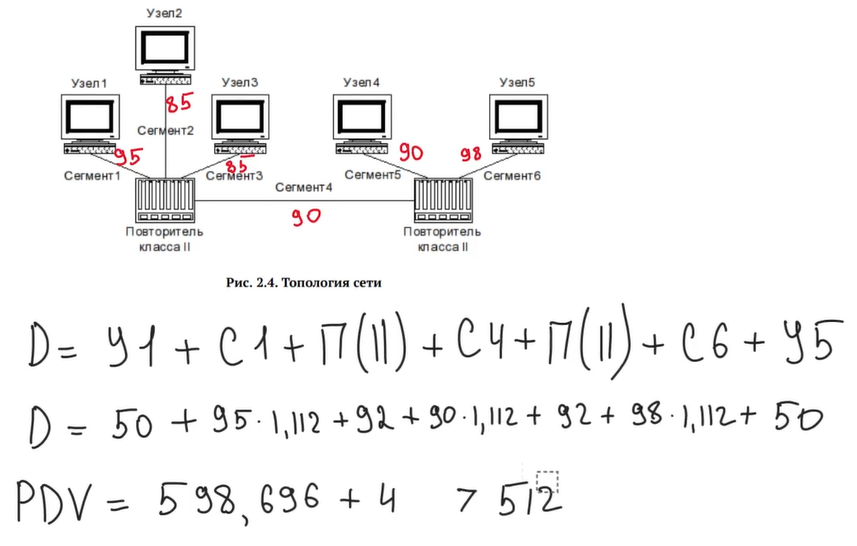 Узел2
Узел1
Узел3
Узел4
Узел5
85
Сегмент2
95
85
90
98
Сегмент1
Сегмент3
Сегмент4
Сегмент5
Сегмент6
90
Повторитель
класса II
Повторитель
класса II
Рис. 2.4. Топология сети
D = У1 + С1 + П(II) + С4 + П(II) + С6 + У5
D = 50 + 95 · 1,112 + 92 + 90 · 1,112 + 92 + 98 · 1,112 + 50
PDV = 598,696 + 4 > 512